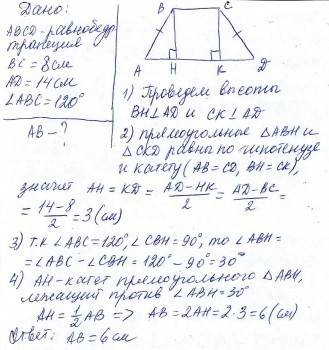 Дано:
ABCD - равнобедр.
трапеция
BC = 8см
AD = 14см
∠ABC = 120°
AB - ?
B C
A H K D
1) Проведем высоты
BH⊥AD и CK⊥AD
2) прямоугольные △ABH и
△CKD равны по гипотенузе
и катету (AB=CD, BH=CK),
значит AH = KD = (AD-HK)/2 = (AD-BC)/2 =
= (14-8)/2 = 3 (см)
3) Т.к ∠ABC=120°, ∠CBH=90°, то ∠ABH=
= ∠ABC - ∠CBH = 120° - 90° = 30°
4) AH - катет прямоугольного △ABH,
лежащий против ∠ABH = 30°
AH = 1/2 AB => AB = 2AH = 2·3 = 6 (см)
Ответ: AB = 6см